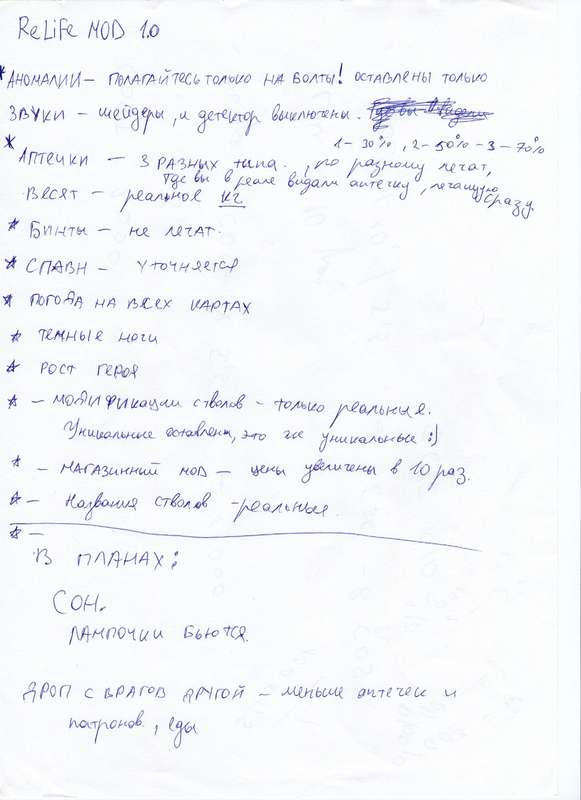 ReLife MOD 1.0
* АНОМАЛИИ – ПОЛАГАЙТЕСЬ ТОЛЬКО НА БОЛТЫ! ОСТАВЛЕНЫ ТОЛЬКО
ЗВУКИ – шейдеры, и детектор выключены.
1 – 30%, 2 – 50% – 3 – 70%
* АПТЕЧКИ – 3 РАЗНЫХ типа., по разному лечат,
Где вы в реале видали аптечку, лечащую сразу.
ВЕСЯТ – реальное КГ
* БИНТЫ – не лечат.
* СПАВН – уточняется
* ПОГОДА НА ВСЕХ КАРТАХ
* ТЕМНЫЕ НОЧИ
* РОСТ ГЕРОЯ
* – МОДИФИКАЦИИ стволов – только реальные.
Уникальные оставлены, это же уникальные :)
* – МАГАЗИННЫЙ MOD – цены увеличены в 10 раз.
* – Названия стволов – реальные.
* –
В ПЛАНАХ:
СОН.
ЛАМПОЧКИ БЬЮТСЯ.
ДРОП С ВРАГОВ ДРУГОЙ – меньше аптечек и
патронов, еды